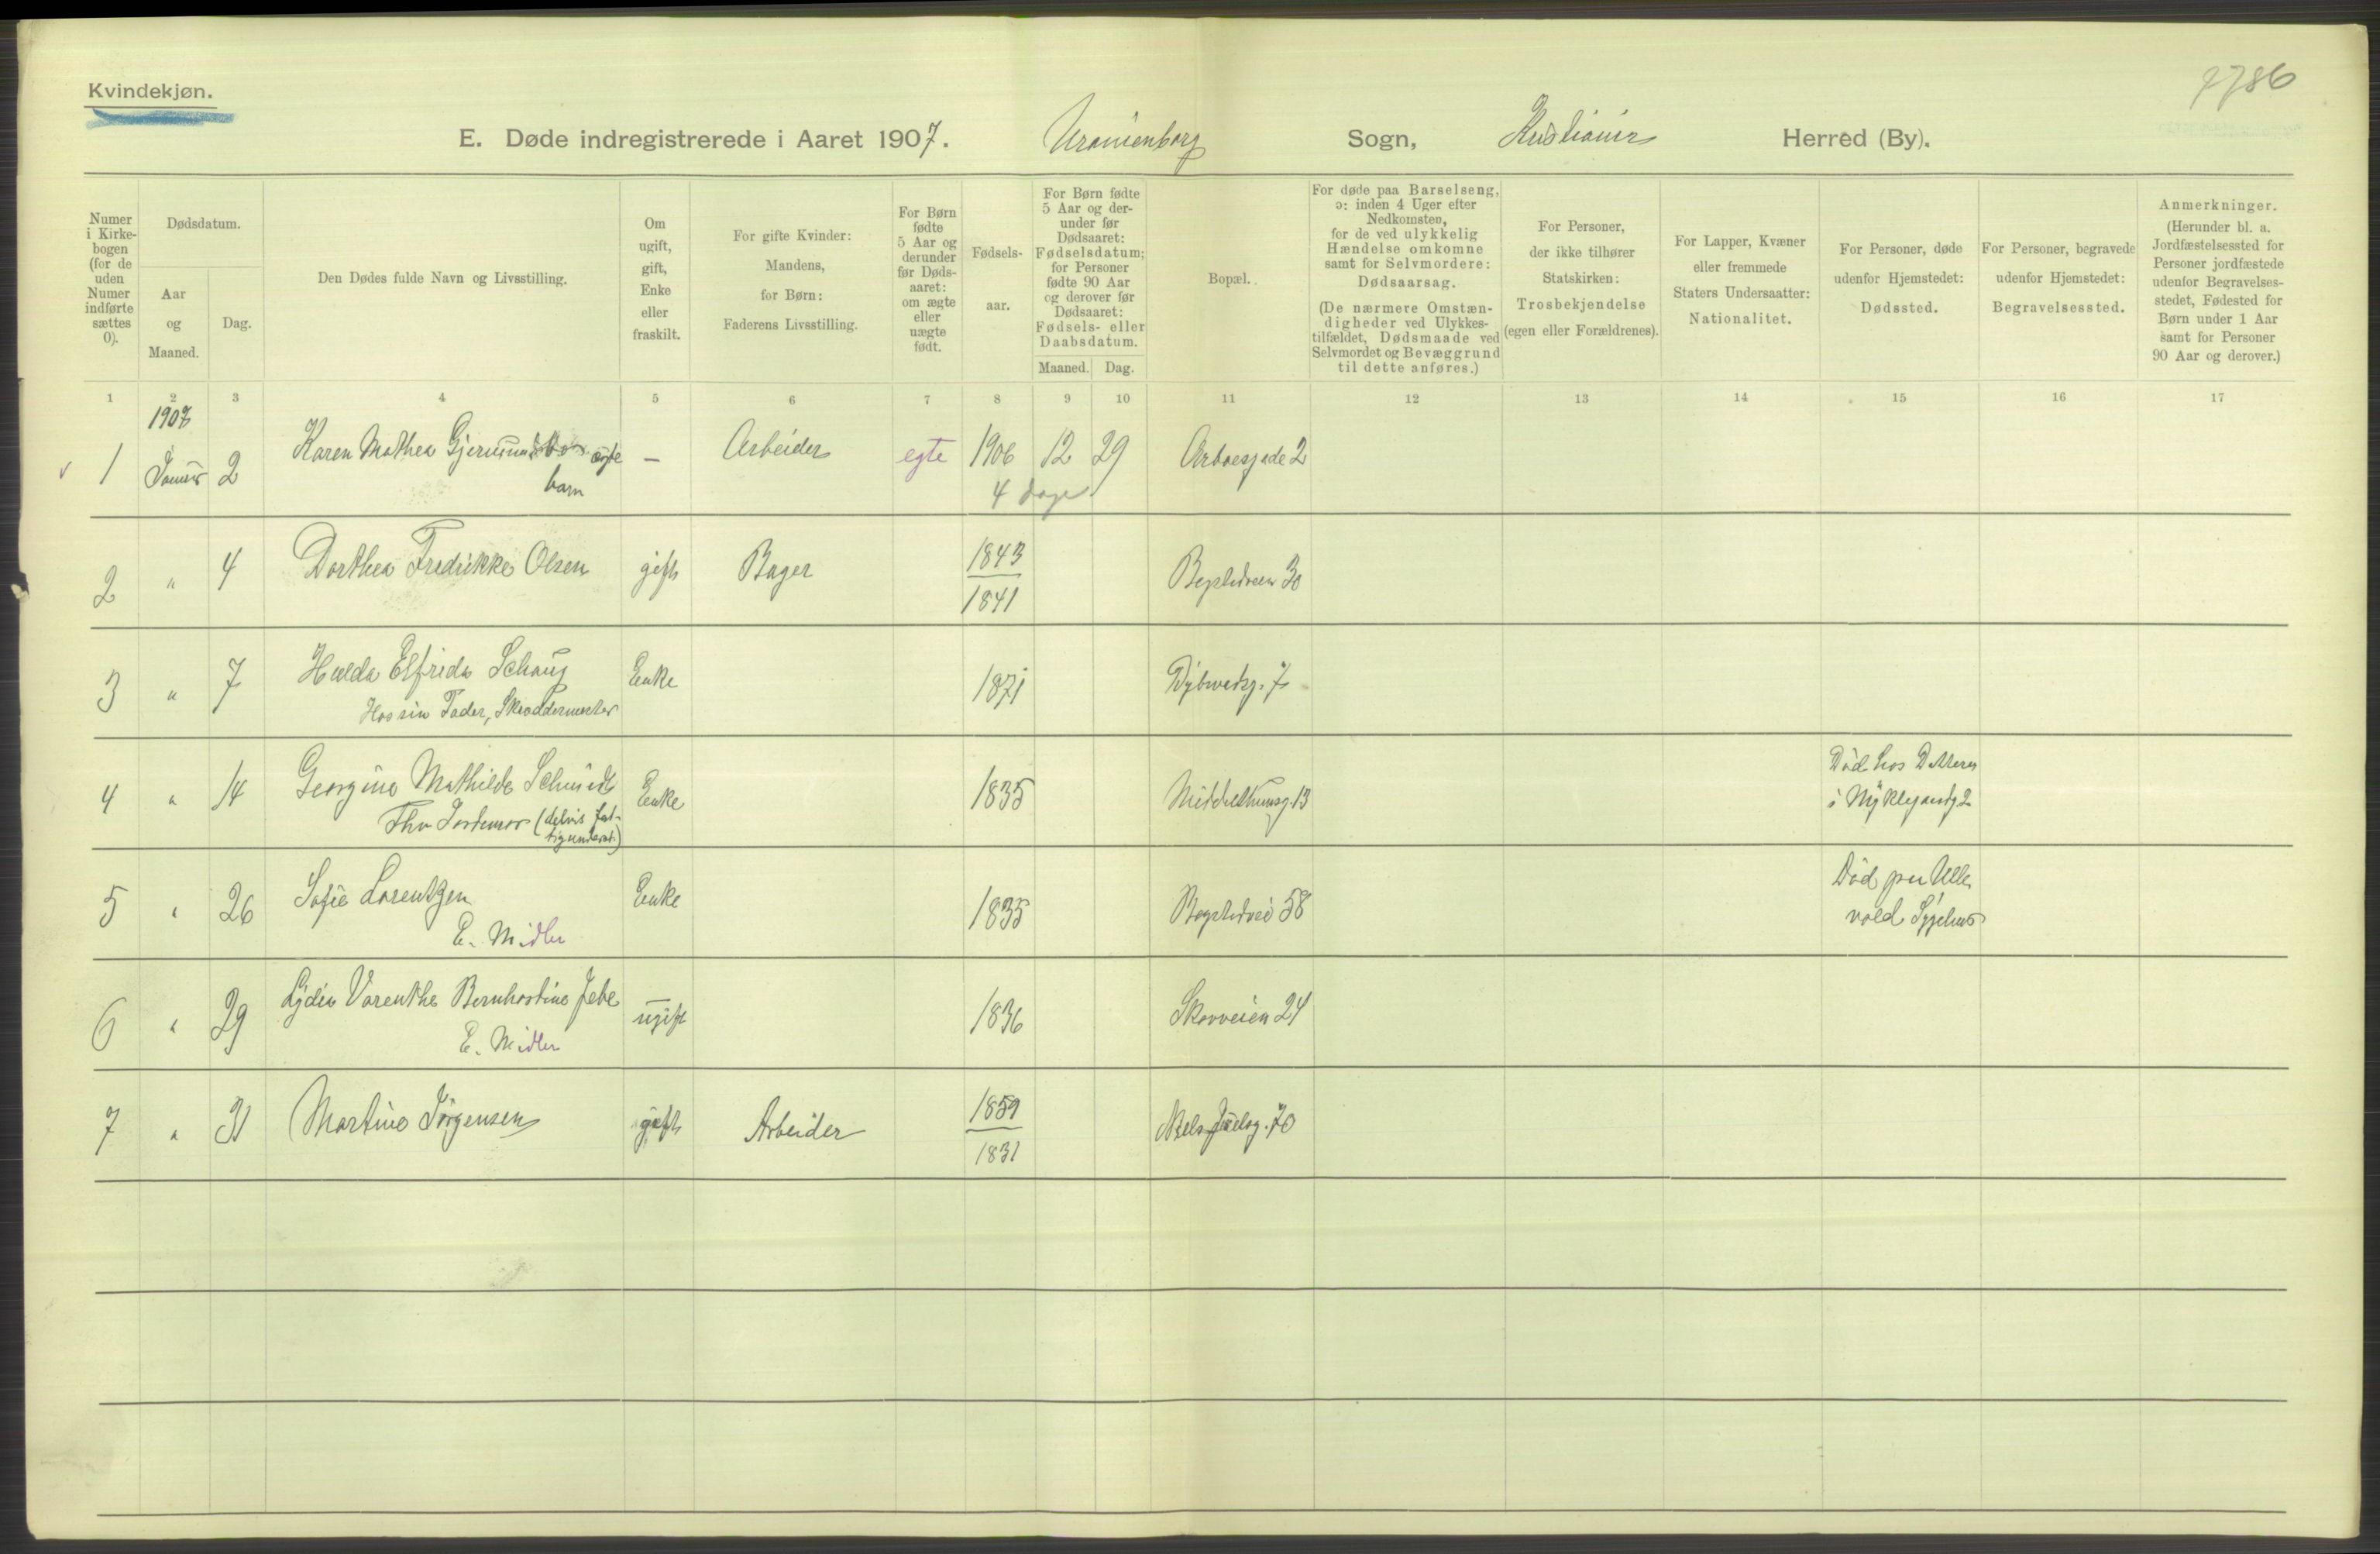 Kvindekjøn.
7786
E. Døde indregistrerede i Aaret 1907. Uranienborg Sogn, Kristiania Herred (By).
Numer i Kirkebogen (for de uden Numer indførte sættes 0).
Dødsdatum.
Aar og Maaned.
Dag.
Den Dødes fulde Navn og Livsstilling.
Om ugift, gift, Enke eller fraskilt.
For gifte Kvinder: Mandens, for Børn: Faderens Livsstilling.
For Børn fødte 5 Aar og derunder før Dødsaaret: om ægte eller uægte født.
Fødselsaar.
For Børn fødte 5 Aar og derunder før Dødsaaret: Fødselsdatum; for Personer fødte 90 Aar og derover før Dødsaaret: Fødsels- eller Daabsdatum.
Maaned. Dag.
Bopæl.
For døde paa Barselseng, ɔ: inden 4 Uger efter Nedkomsten, for de ved ulykkelig Hændelse omkomne samt for Selvmordere: Dødsaarsag.
(De nærmere Omstændigheder ved Ulykkestilfældet, Dødsmaade ved Selvmordet og Bevæggrund til dette anføres.)
For Personer, der ikke tilhører Statskirken: Trosbekjendelse (egen eller Forældrenes).
For Lapper, Kvæner eller fremmede Staters Undersaatter: Nationalitet.
For Personer, døde udenfor Hjemstedet: Dødssted.
For Personer, begravede udenfor Hjemstedet: Begravelsessted.
Anmerkninger.
(Herunder bl. a. Jordfæstelsessted for Personer jordfæstede udenfor Begravelsesstedet, Fødested for Børn under 1 Aar samt for Personer 90 Aar og derover.)
1 2 3 4 5 6 7 8 9 10 11 12 13 14 15 16 17
1907
1 Januar 2 Karen Mathea ægte barn — Arbeider egte 1906 12 29 Arboesgade 2
4 dage
2 " 4 Dorthea Fredrikke Olsen gift Bager 1843 Bogstadveien 30
1841
3 " 7 Hulda Elfrida Schaug Enke 1871 Dybwadsg. 7
Hos sin Fader, Skræddermester
4 " 14 Georgine Mathilde Schmidt Enke 1835 Middelthunsg. 13 Død hos Datteren
Fhv Jordemor (delvis fattigunderst.) i Nyklejordg 2
5 " 26 Sofie Lorentzen Enke 1835 Bogstadvei 58 Død paa Ullevold Sygehus
E. Midler
6 " 29 Lydia Varenthe Bernhardine Jebe ugift 1836 Skovveien 24
E. Midler
7 " 31 Martine Jörgensen gift Arbeider 1859 Niels Juelsg. 70
1831